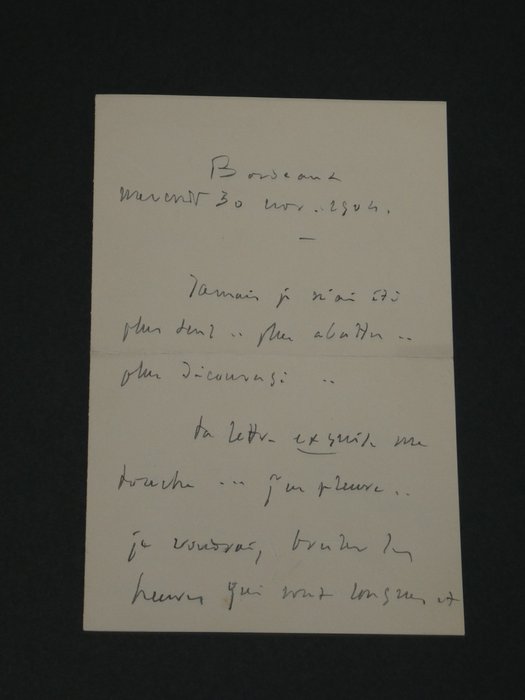 Bordeaux
mercredi 30 nov. 1904.
Jamais je n'ai été
plus .. plus abattu ..
plus découragé ..
ta lettre exquise me
touche ... j'en pleure ..
je voudrais brûler les
heures qui sont longues et